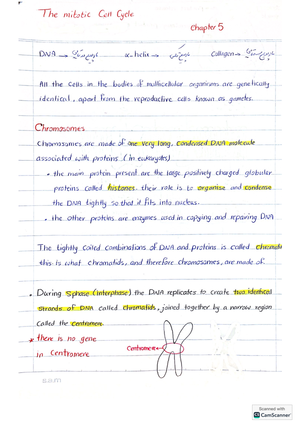 The mitotic Cell Cycle
Chapter 5
DNA → α-helix → Collagen →
All the Cells in the bodies of multicellular organisms are genetically
identical, apart from the reproductive cells known as gametes.
Chromosomes
Chromosomes are made of one very long, Condensed DNA molecule
associated with proteins (in eukaryotes)
• the main protein present are the large positively charged globular
proteins called histones. their role is to organise and condense
the DNA tightly so that it fits into nucleus.
• the other proteins are enzymes used in copying and repairing DNA
The tightly coiled combinations of DNA and proteins is called chromati
this is what chromatids, and therefore chromosomes, are made of
• During S phase (interphase) the DNA replicates to create two identical
strands of DNA called Chromatids, joined together by a narrow region
called the centromere.
* there is no gene
in centromere
Centromere
Scanned with
CS CamScanner